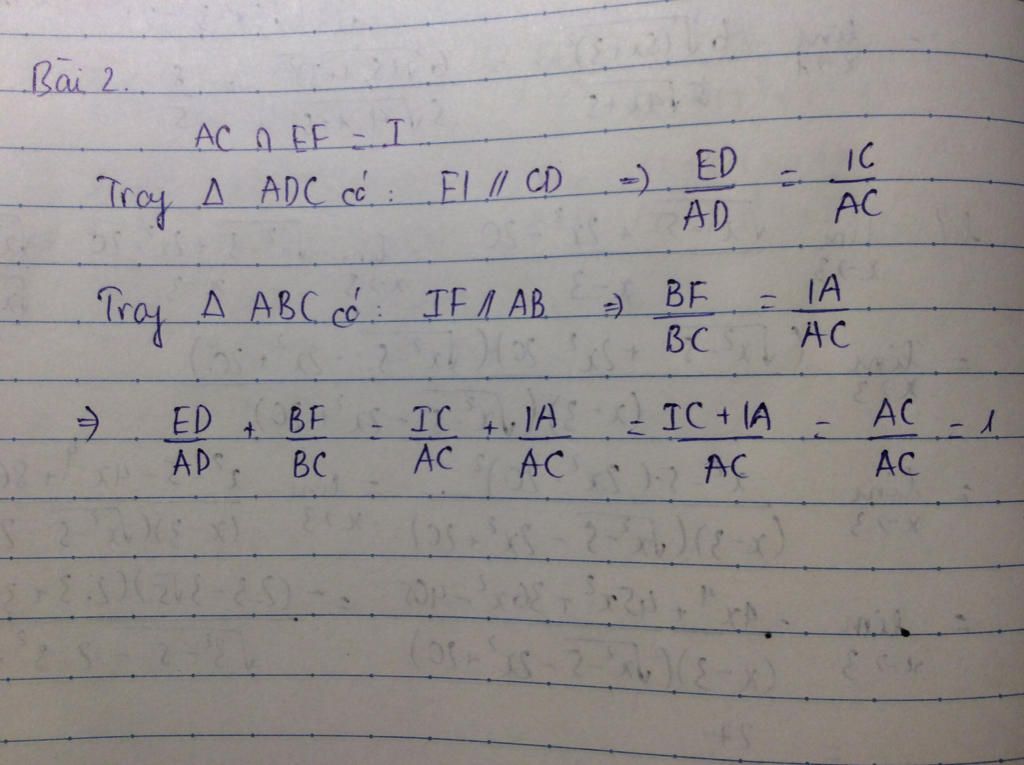 Bài 2.
AC ∩ EF = I
Trong Δ ADC có : EI // CD ⇒ ED/AD = IC/AC
Trong Δ ABC có : IF // AB ⇒ BF/BC = IA/AC
⇒ ED/AD + BF/BC = IC/AC + IA/AC = IC + IA/AC = AC/AC = 1